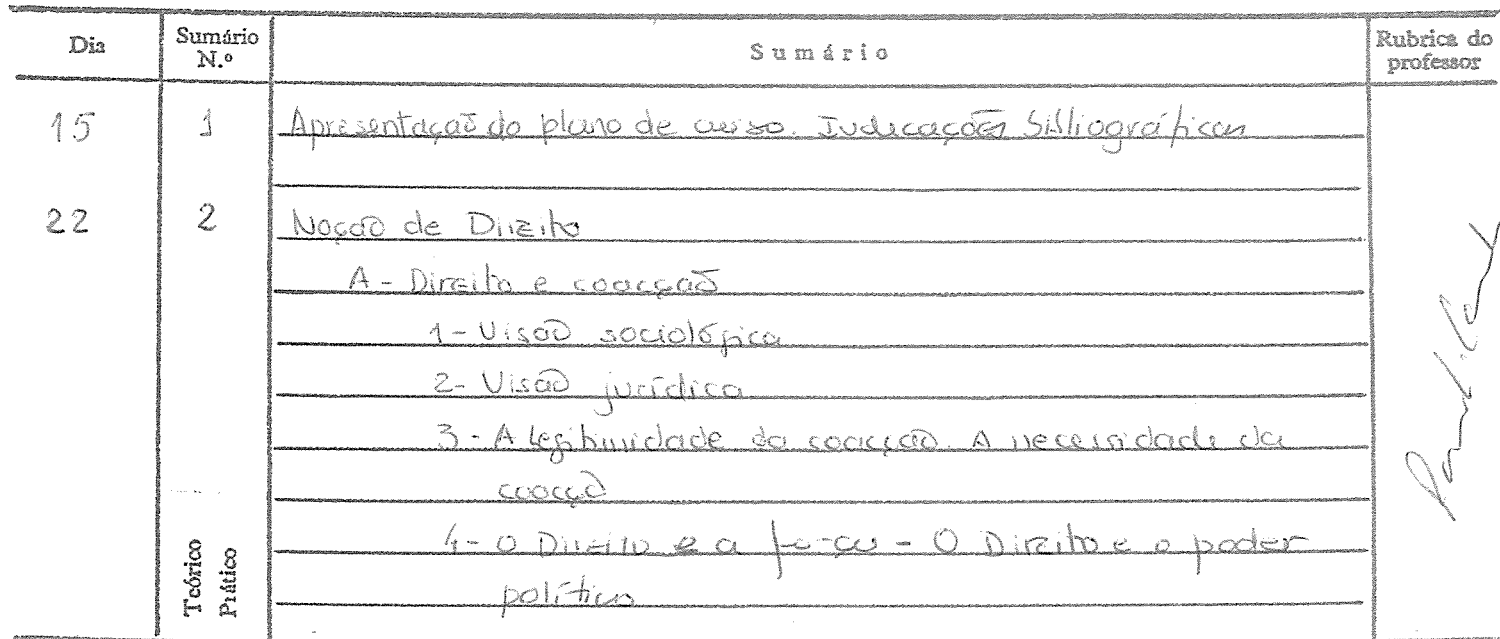 Dia Sumário N.º Sumário Rubrica do professor
15 1 Apresentação do plano de curso. Indicações bibliográficas
22 2 Noção de Direito
A - Direito e coacção
1 - Visão sociológica
2 - Visão jurídica
3 - A legitimidade da coacção. A necessidade da
coacção
4 - O Direito e a força - O Direito e o poder
político
Teórico
Prático